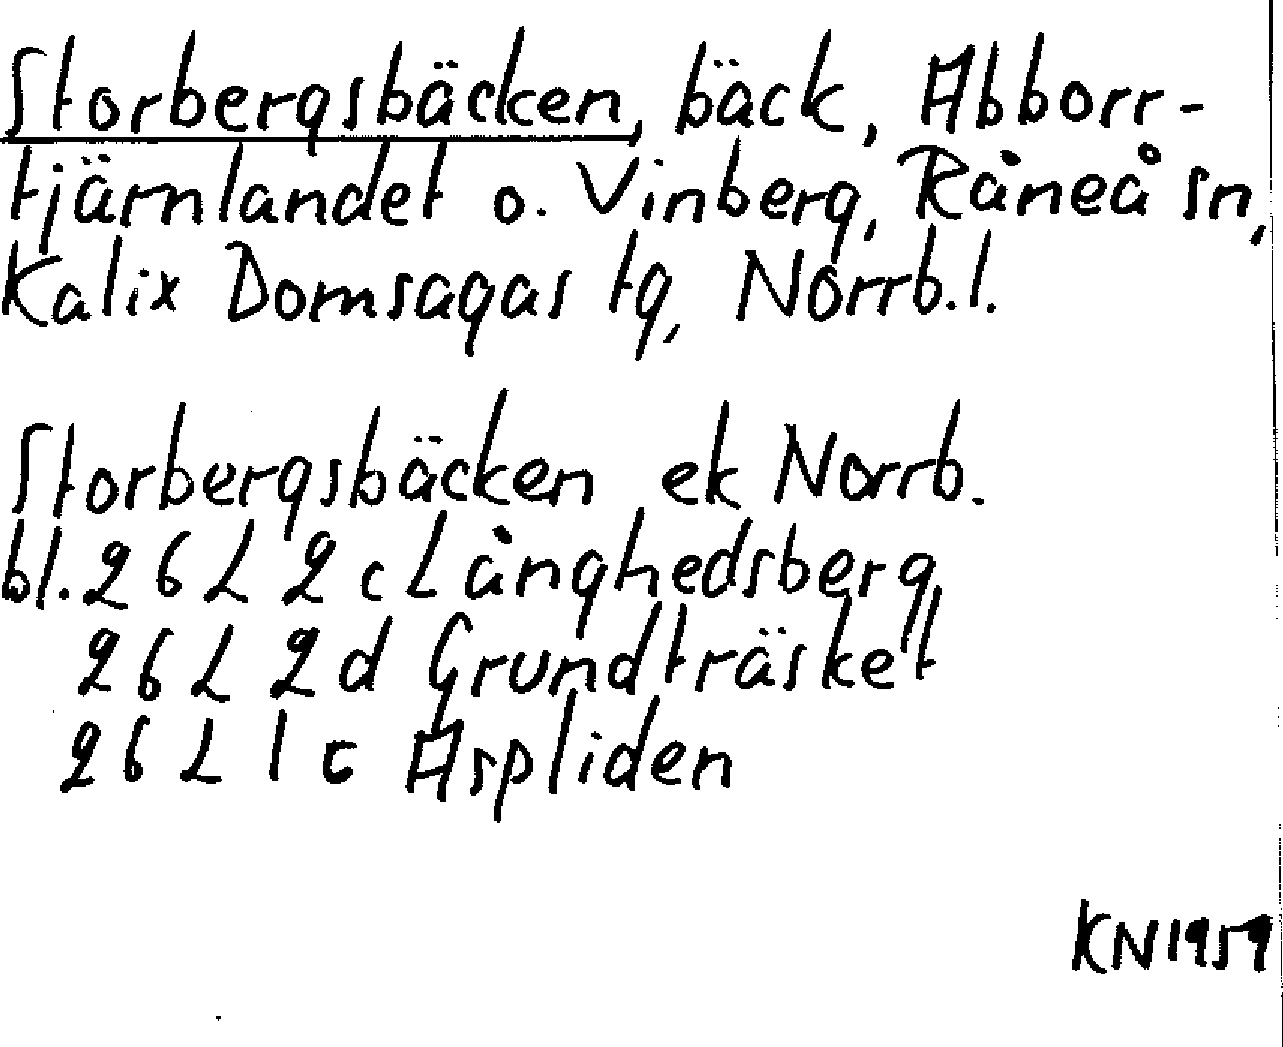 Storbergsbäcken, bäck, Abborr-
tjärnlandet o. Vinberg, Råneå sn,
Kalix Domsagas tg, Norrb.l.
Storbergsbäcken ek Norrb.
bl. 26 L 2 c Långhedsberg
26 L 2 d Grundträsket
26 L 1 c Aspliden
KN 1959